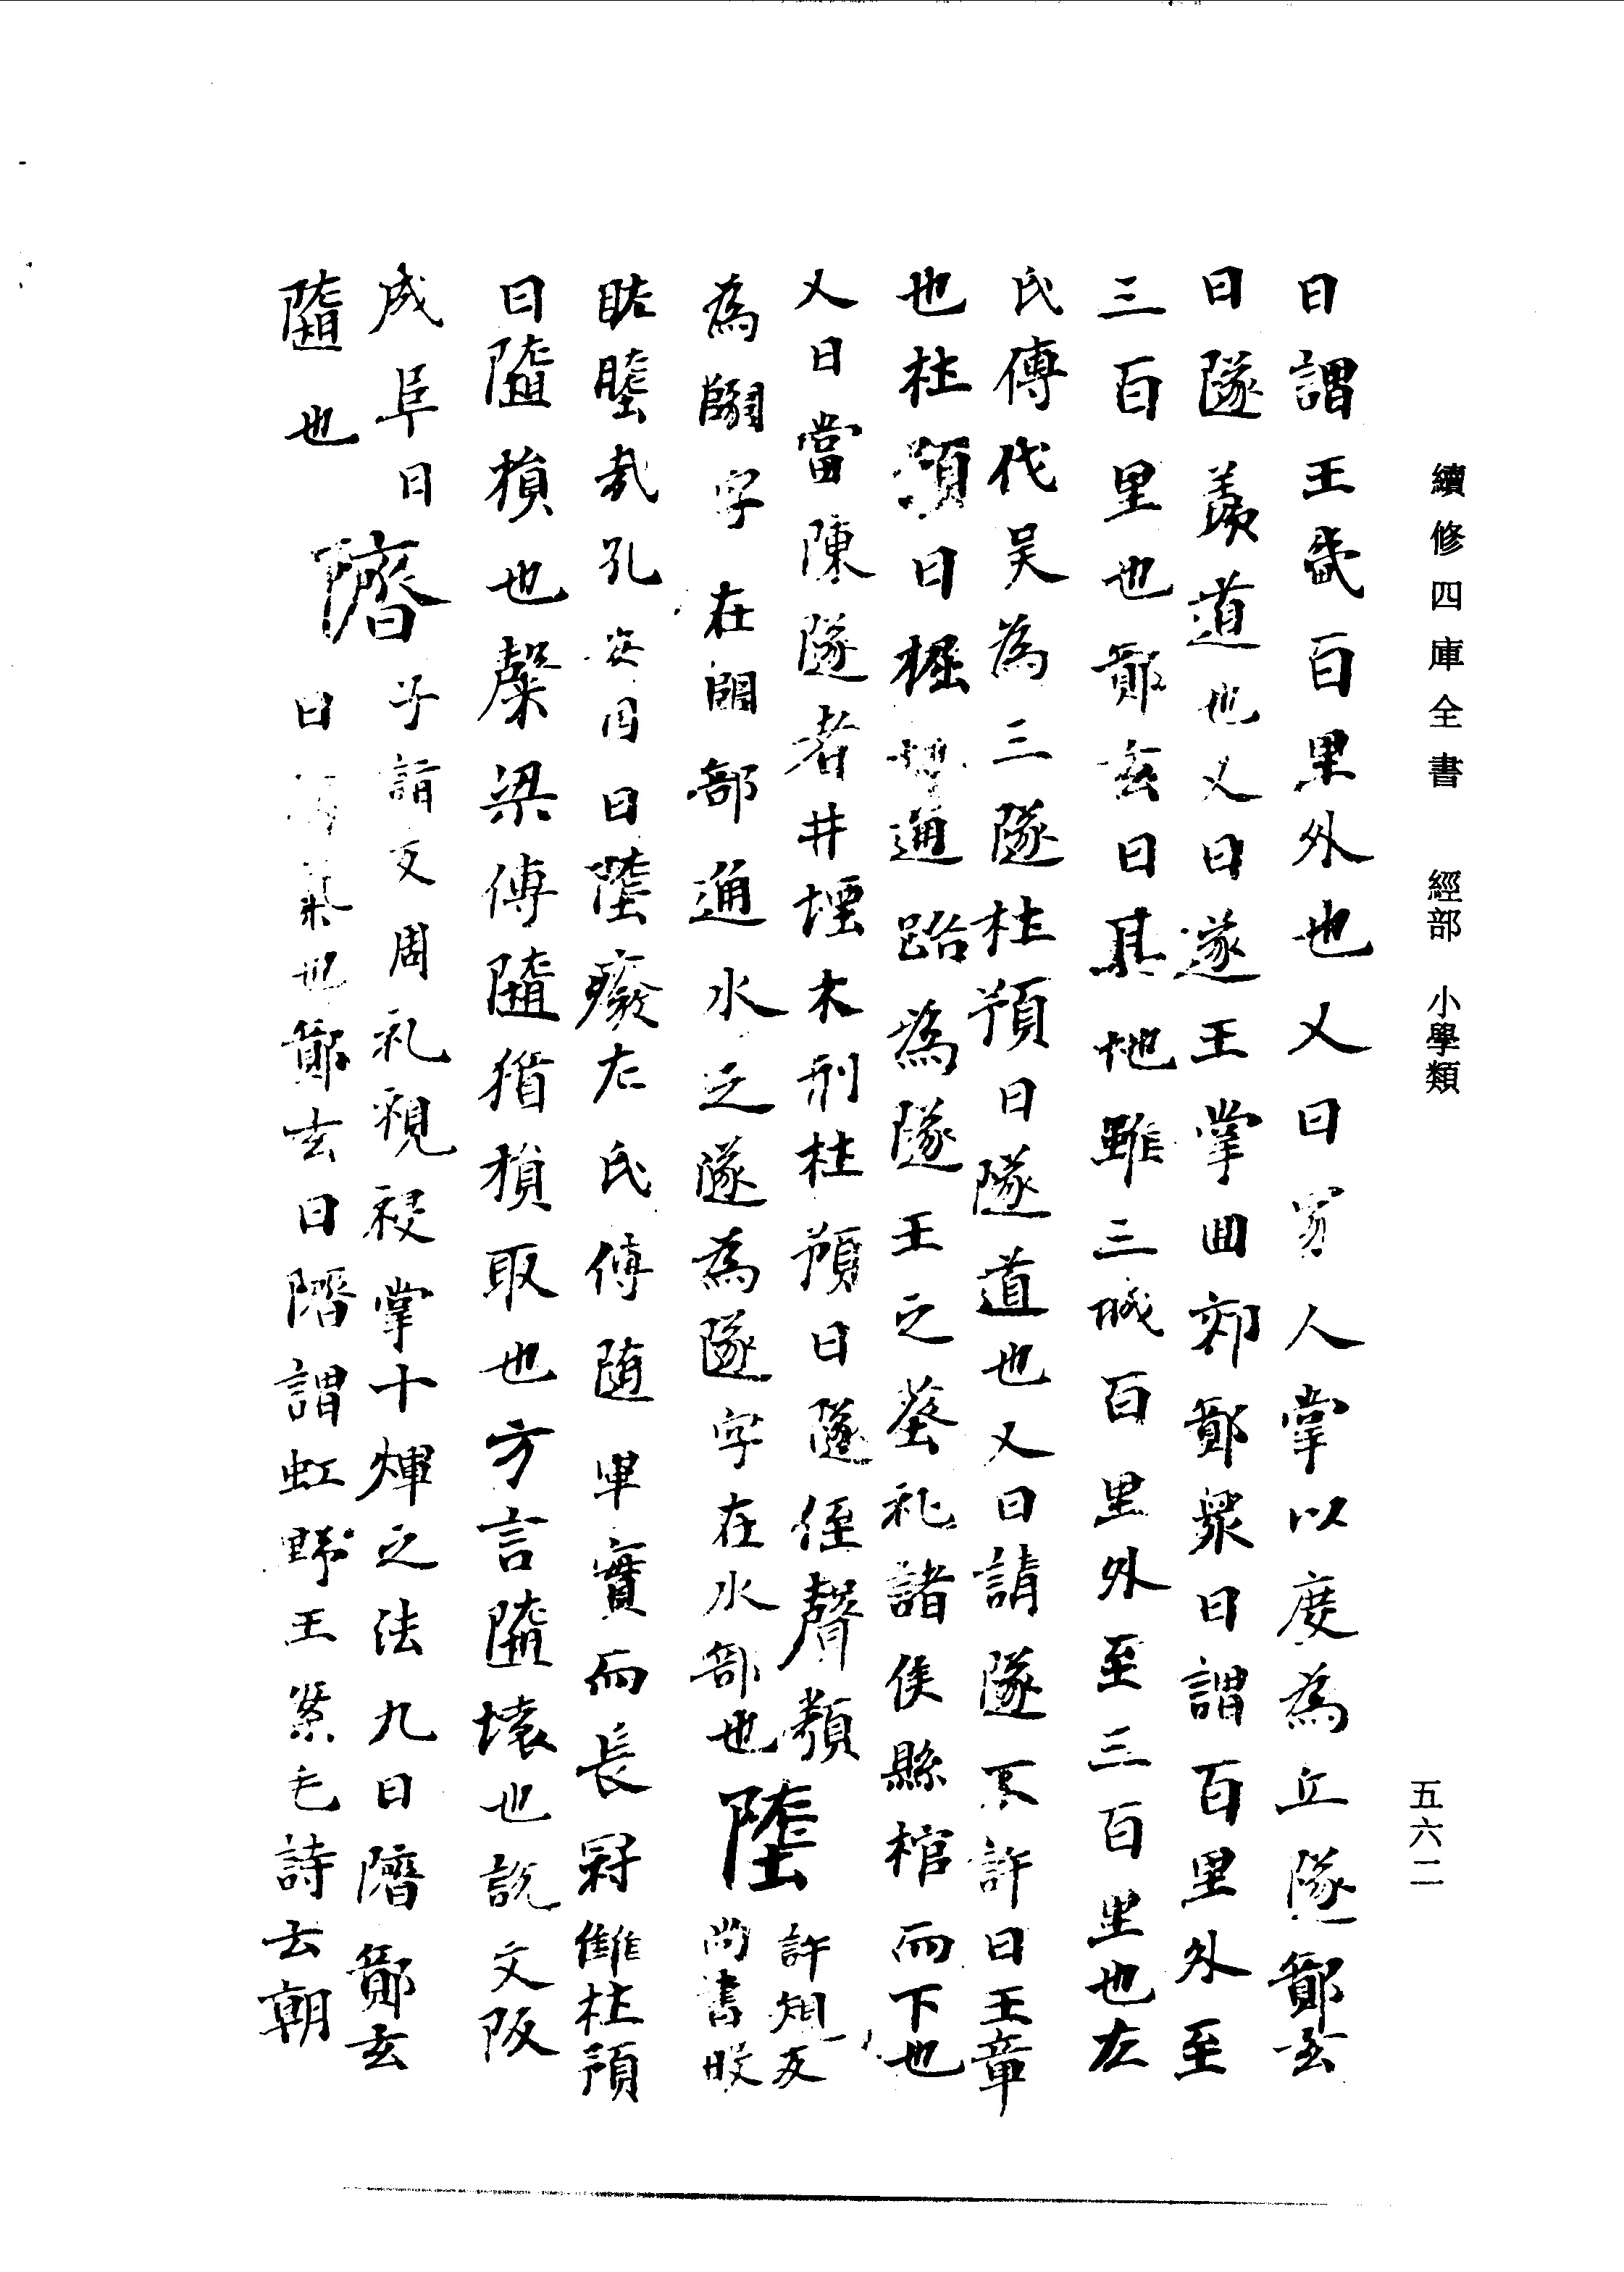 續修四庫全書 經部 小學類
五六二
曰謂王畿百里外也又曰冢人掌以度為丘隧鄭玄
曰隧羨道也又曰遂王掌四郊鄭眾曰謂百里外至
三百里也鄭玄曰其地雖三城百里外至三百里也左
氏傳代吴為三隧杜預曰隧道也又曰請隧不許曰王章
也杜預曰掘地通路為隧王之葬礼諸侯縣棺而下也
又曰當陳隧者井堙木刊杜預曰隧侄聲類
為字在部通水之隧為隧字在水部也墮許規反尚書股
肱墮哉孔安囯曰墮癈左氏傳随軍實而長冦雠杜預
曰隳損也榖梁傳隳猶損取也方言隳壊也說文阪
成阜曰隮子詣反周礼視祲掌十煇之法九曰隮鄭玄
隳也曰氣也鄭玄曰隮謂虹野王案毛詩云朝